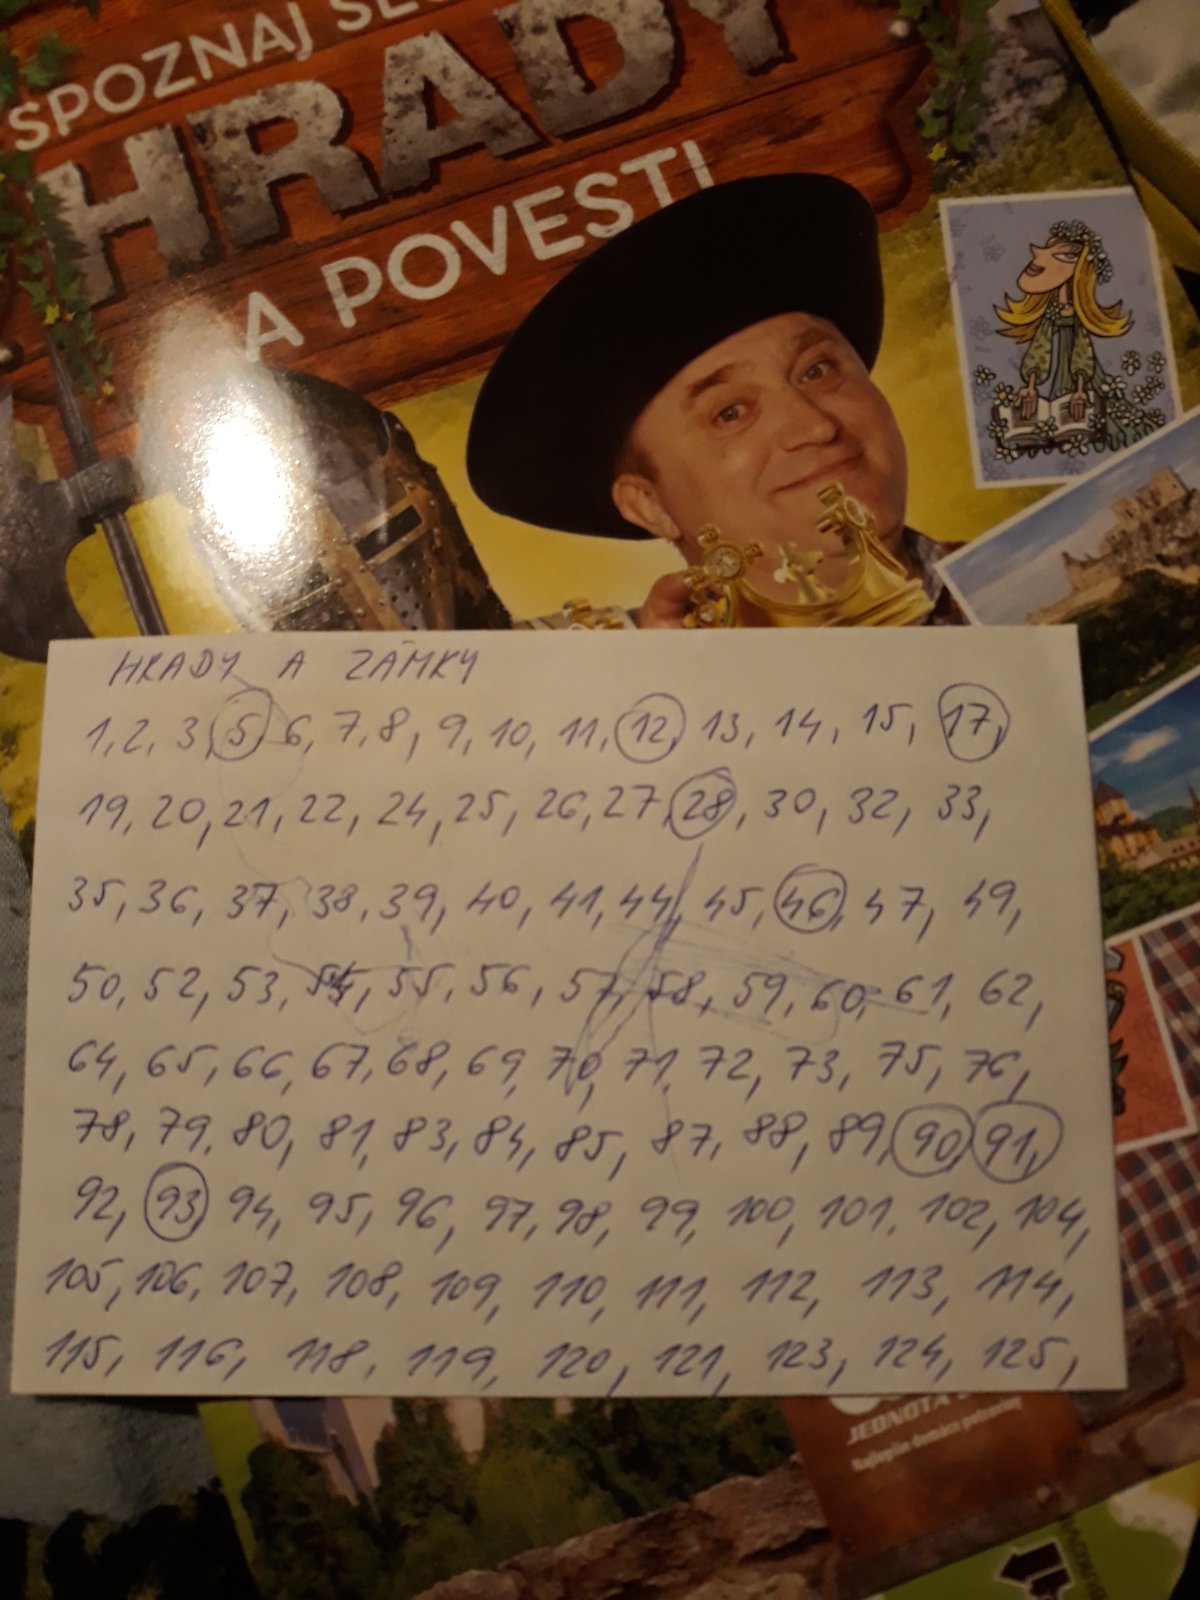 SPOZNAJ
HRADY
A POVESTI
HRADY A ZÁMKY
1, 2, 3, 5, 6, 7, 8, 9, 10, 11, 12, 13, 14, 15, 17,
19, 20, 21, 22, 24, 25, 26, 27, 28, 30, 32, 33,
35, 36, 37, 38, 39, 40, 41, 44, 45, 46, 47, 49,
50, 52, 53, 54, 55, 56, 57, 58, 59, 60, 61, 62,
64, 65, 66, 67, 68, 69, 70, 71, 72, 73, 75, 76,
78, 79, 80, 81, 83, 84, 85, 87, 88, 89, 90, 91,
92, 93, 94, 95, 96, 97, 98, 99, 100, 101, 102, 104,
105, 106, 107, 108, 109, 110, 111, 112, 113, 114,
115, 116, 118, 119, 120, 121, 123, 124, 125,
JEDNOTA
Najlepšie domáce potraviny